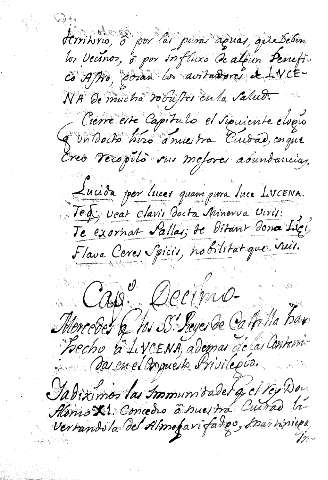 territorio, ô por las puras aguas, que beben
los vecinos, ô por influxo de algun Benefi-
co Astro, gozan los avitadores de LVCE-
NA de mucha robustès en la Salud.
Cierre este Capitulo el siguiente elogio
q̃ un docto hizo â nuestra Ciudad, en que
creô recopilô sus mejores abundancias.
Lucida per luces quam pura luce LUCENA.
Teq; beat claris docta Minerva viris:
Te exornat Pallas; te ditant dona
Flava Ceres Spicis, nobilitat que suis.
Capº. Decimo.
Mercedes q̃ los Rˢ. Reyes de Castilla han
hecho â LVCENA, ademas de las conteni-
das en el Privilegio.
Ya diximos las Immunidades q̃ el rey Dⁿ
Alonso XI. Concediô â nuestra Ciudad li-
vertandola del Almojarifadgo,